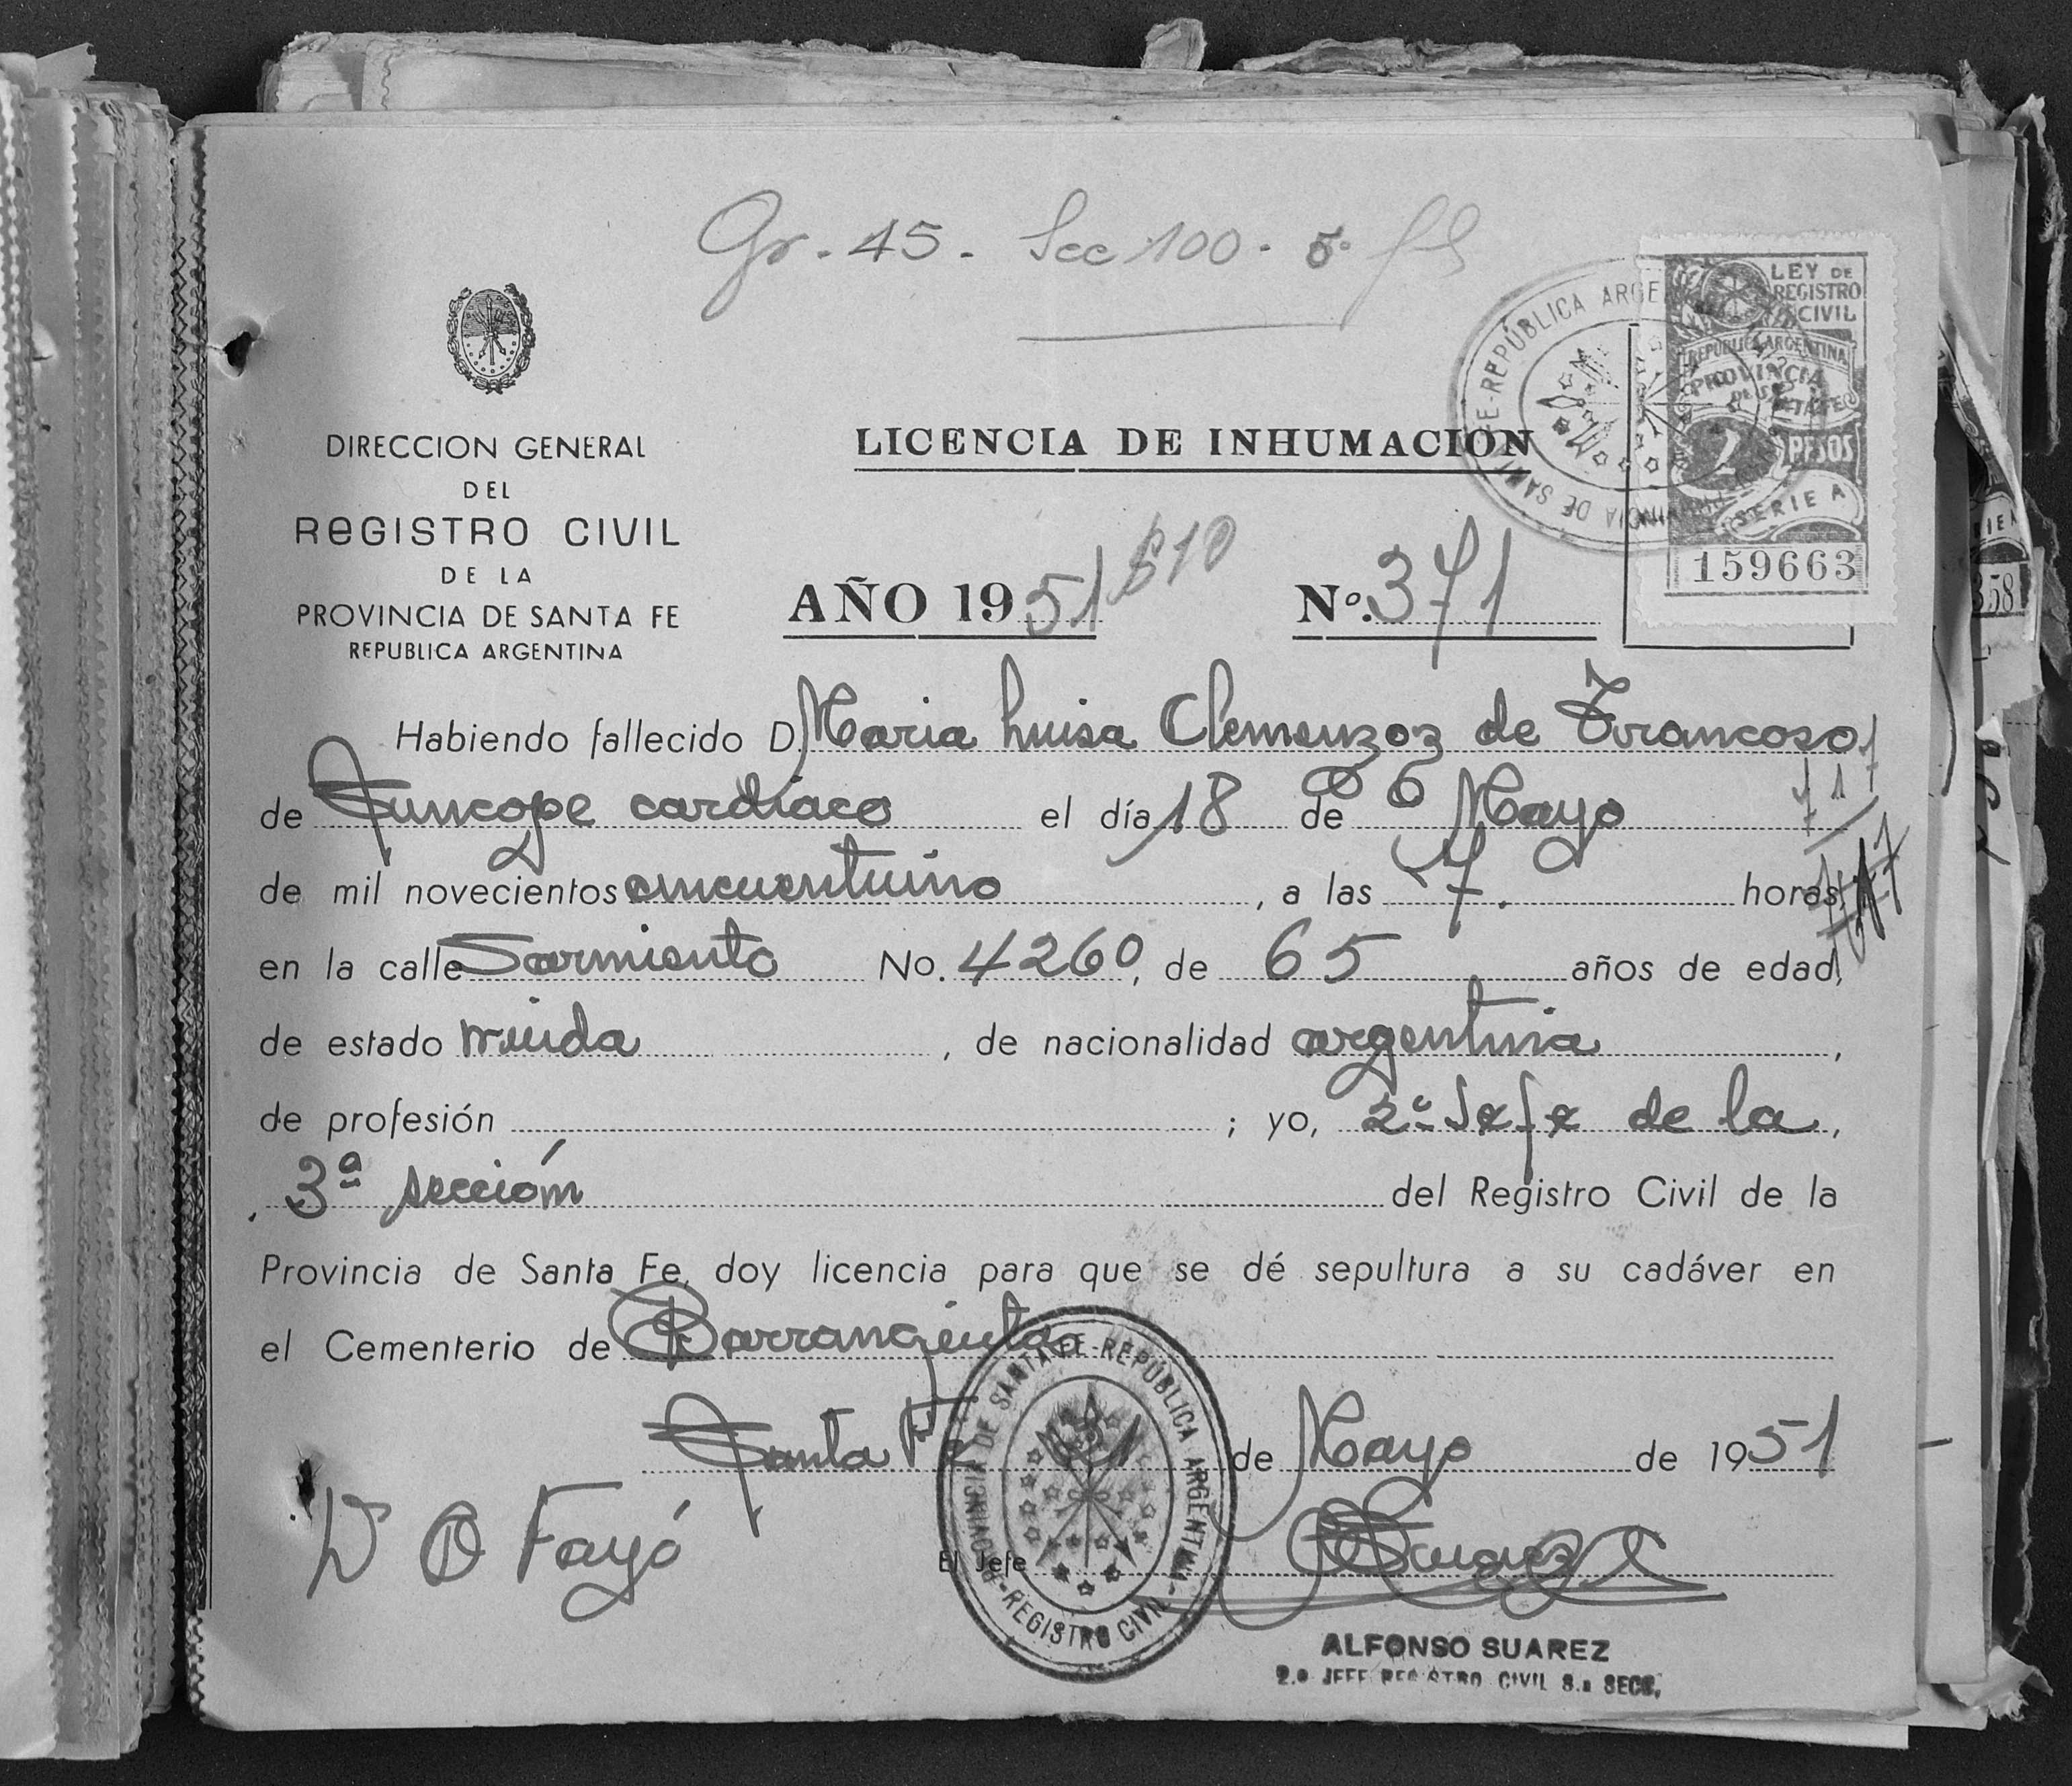 Gr. 45. Sec 100. 5º
DIRECCION GENERAL
DEL
REGISTRO CIVIL
DE LA
PROVINCIA DE SANTA FE
REPUBLICA ARGENTINA
LEY DE
REGISTRO
CIVIL
REPUBLICA ARGENTINA
PROVINCIA
DE SANTA FE
2 PESOS
SERIE A
159663
PROVINCIA DE SANTA FE-REPÚBLICA ARGENTINA
LICENCIA DE INHUMACION
AÑO 1951 $10 Nº. 371
Habiendo fallecido D. Maria Luisa Clemenzoz de Troncoso
de Suncope cardiaco el día 18 de Mayo
de mil novecientos cincuentiuno, a las 7. horas,
en la calle Sarmiento No. 4260, de 65 años de edad,
de estado viuda, de nacionalidad argentina,
de profesión ; yo, 2º Jefe de la,
3ª sección del Registro Civil de la
Provincia de Santa Fe, doy licencia para que se dé sepultura a su cadáver en
el Cementerio de Barranquita
Santa Fe 21 de Mayo de 1951
D O Fayó
El Jefe
PROVINCIA DE SANTA FE-REPÚBLICA ARGENTINA-REGISTRO CIVIL
ASuarez
ALFONSO SUAREZ
2.º JEFE REGISTRO CIVIL 3.ª SECC.
358